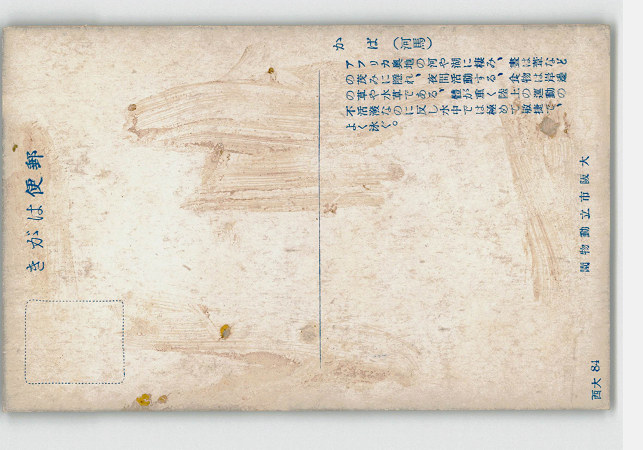 郵便はがき
かば（河馬）
アフリカ奥地の河や湖に棲み、晝は葦など
の茂みに隠れ、夜間活動する、食物は岸邊
の草や水草である、體が重く陸上の運動の
不活潑なのに反し水中では極めて敏捷で、
よく泳ぐ。
大阪市立動物園
西大 84